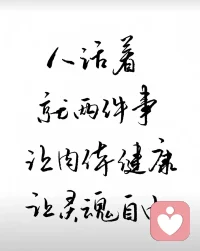 人活着
就两件事
让肉体健康
让灵魂自由